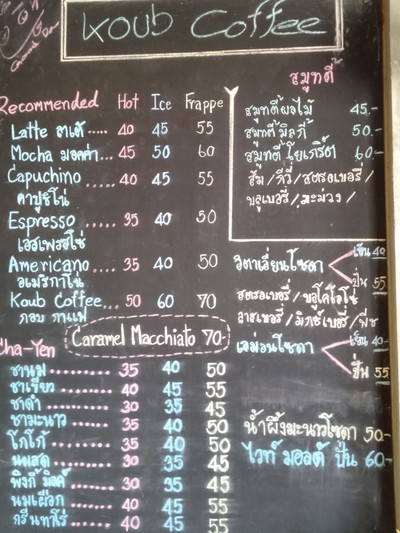 Koub Coffee
Recommended Hot Ice Frappe
Latte ลาเต้ ..... 40 45 55
Mocha มอคค่า... 45 50 60
Capuchino ..... 40 45 55
คาปูชิโน่
Espresso ..... 35 40 50
เอสเพรสโซ่
Americano .... 35 40 50
อเมริกาโน่
Koub Coffee... 50 60 70
กอบ กาแฟ
Caramel Macchiato 70-
Cha-Yen
ชานม 35 40 50
ชาเขียว 40 45 55
ชาดำ 30 35 45
ชามะนาว 35 40 50
โกโก้ 35 40 50
นมสด 30 35 45
พิงกี้ มิลค์ 30 35 45
นมเผือก 40 45 55
กรีนทาโร่ 40 45 55
สมูทตี้
สมูทตี้ผลไม้ 45.-
สมูทตี้ มิลกี้ 50.-
สมูทตี้ โยเกิร์ต 60.-
ส้ม / กีวี่ / สตรอเบอรี่ /
บลูเบอรี่ / มะม่วง /
อิตาเลี่ยนโซดา เย็น 40
ปั่น 55
สตรอเบอรี่ / บลูโคโลโน่
ราสเบอรี่ / มิกซ์เบอรี่ / พีช
เลม่อนโซดา เย็น 40-
ปั่น 55
น้ำผึ้งมะนาวโซดา 50.-
ไวท์ มอลต์ ปั่น 60.-